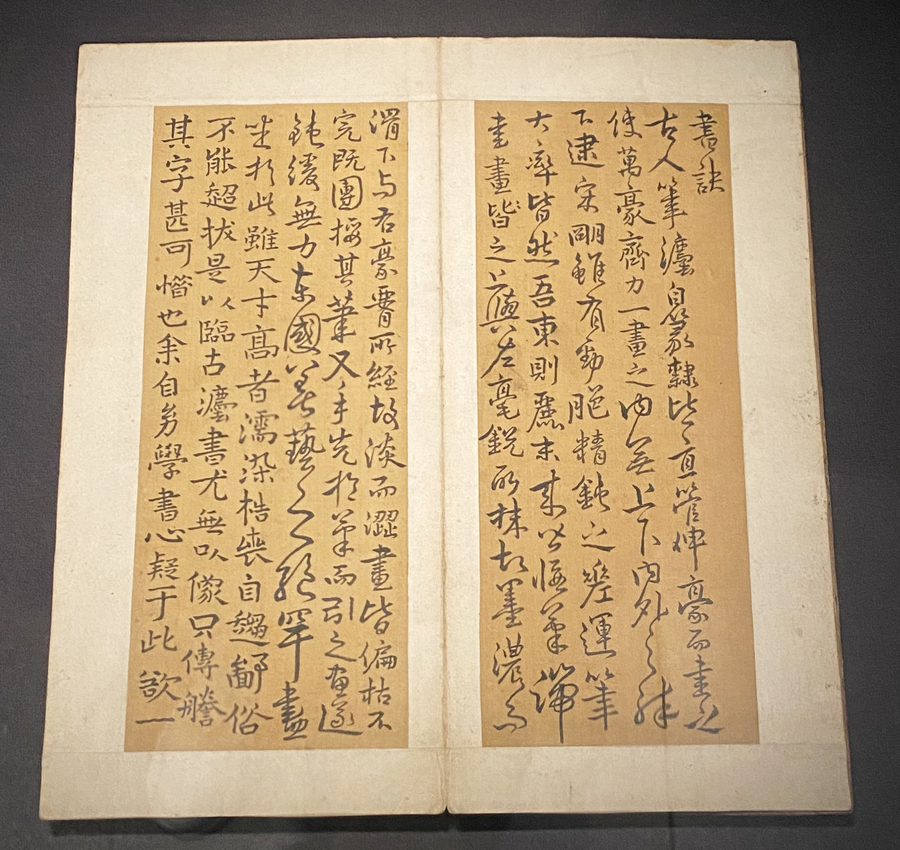 書訣
古人筆灋自篆隷皆直管伸豪而書之
使萬豪齊力一畫之内無上下内外之殊
下逮宋明雖有勁脆精鈍之差運筆
大率皆然吾東則麗末来皆偃筆端
書畫皆之上與左毫銳所抹故墨濃而
滑下与右豪腰所經故淡而澀畫皆偏枯不
完既團挼其筆又手先於筆而引之畫遂
鈍緩無力東國筆藝之絶罕盡
坐於此雖天才高者濡染梏喪自鄙俗
不能超拔是以臨古灋書尤無以像只傳謄
其字甚可惜也余自幼學書心疑于此欲一